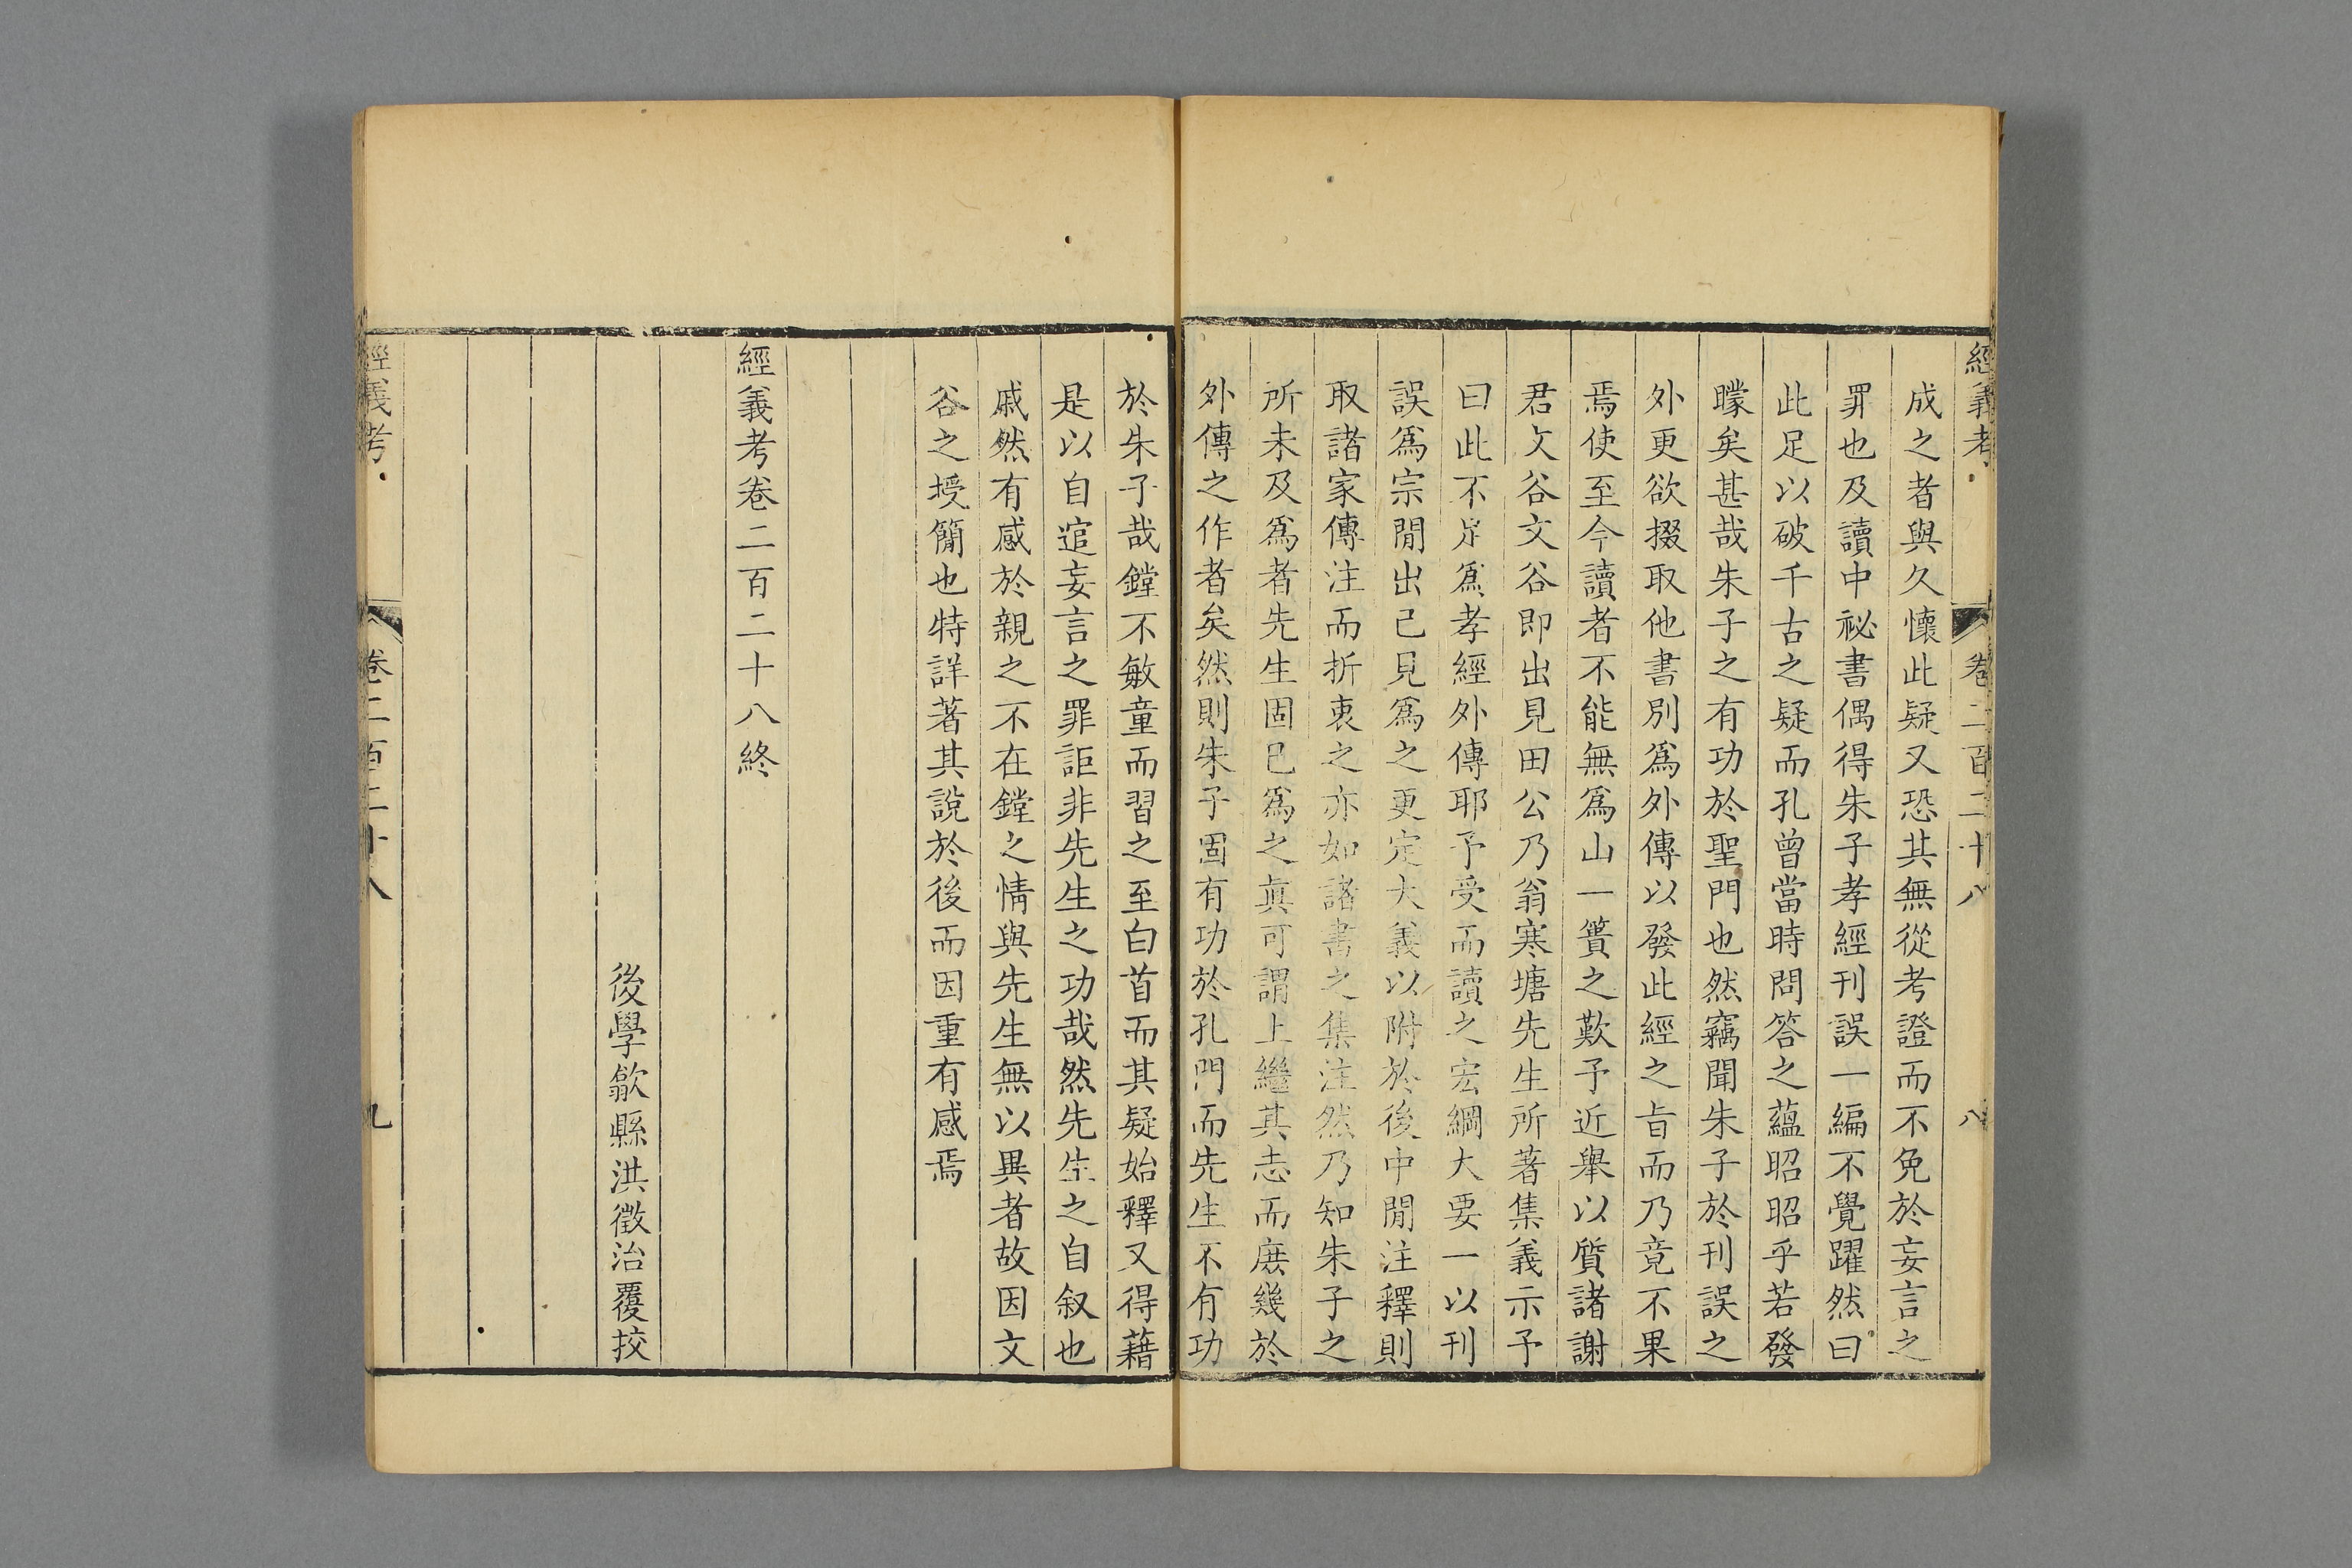 經義考 卷二百二十八 八
成之者與久懷此疑又恐其無從考證而不免於妄言之
罪也及讀中祕書偶得朱子孝經刊誤一編不覺躍然曰
此足以破千古之疑而孔曾當時問答之蘊昭昭乎若發
矇矣甚哉朱子之有功於聖門也然竊聞朱子於刊誤之
外更欲掇取他書別爲外傳以發此經之旨而乃竟不果
焉使至今讀者不能無爲山一簣之歎予近舉以質諸謝
君文谷文谷即出見田公乃翁寒塘先生所著集義示予
曰此不足爲孝經外傳耶予受而讀之宏綱大要一以刊
誤爲宗閒出己見爲之更定大義以附於後中閒注釋則
取諸家傳注而折衷之亦如諸書之集注然乃知朱子之
所未及爲者先生固已爲之眞可謂上繼其志而庶幾於
外傳之作者矣然則朱子固有功於孔門而先生不有功
於朱子哉鏜不敏童而習之至白首而其疑始釋又得藉
是以自逭妄言之罪詎非先生之功哉然先生之自叙也
戚然有感於親之不在鏜之情與先生無以異者故因文
谷之授簡也特詳著其說於後而因重有感焉
經義考卷二百二十八終
後學歙縣洪徵治覆挍
經義考 卷二百二十八 九